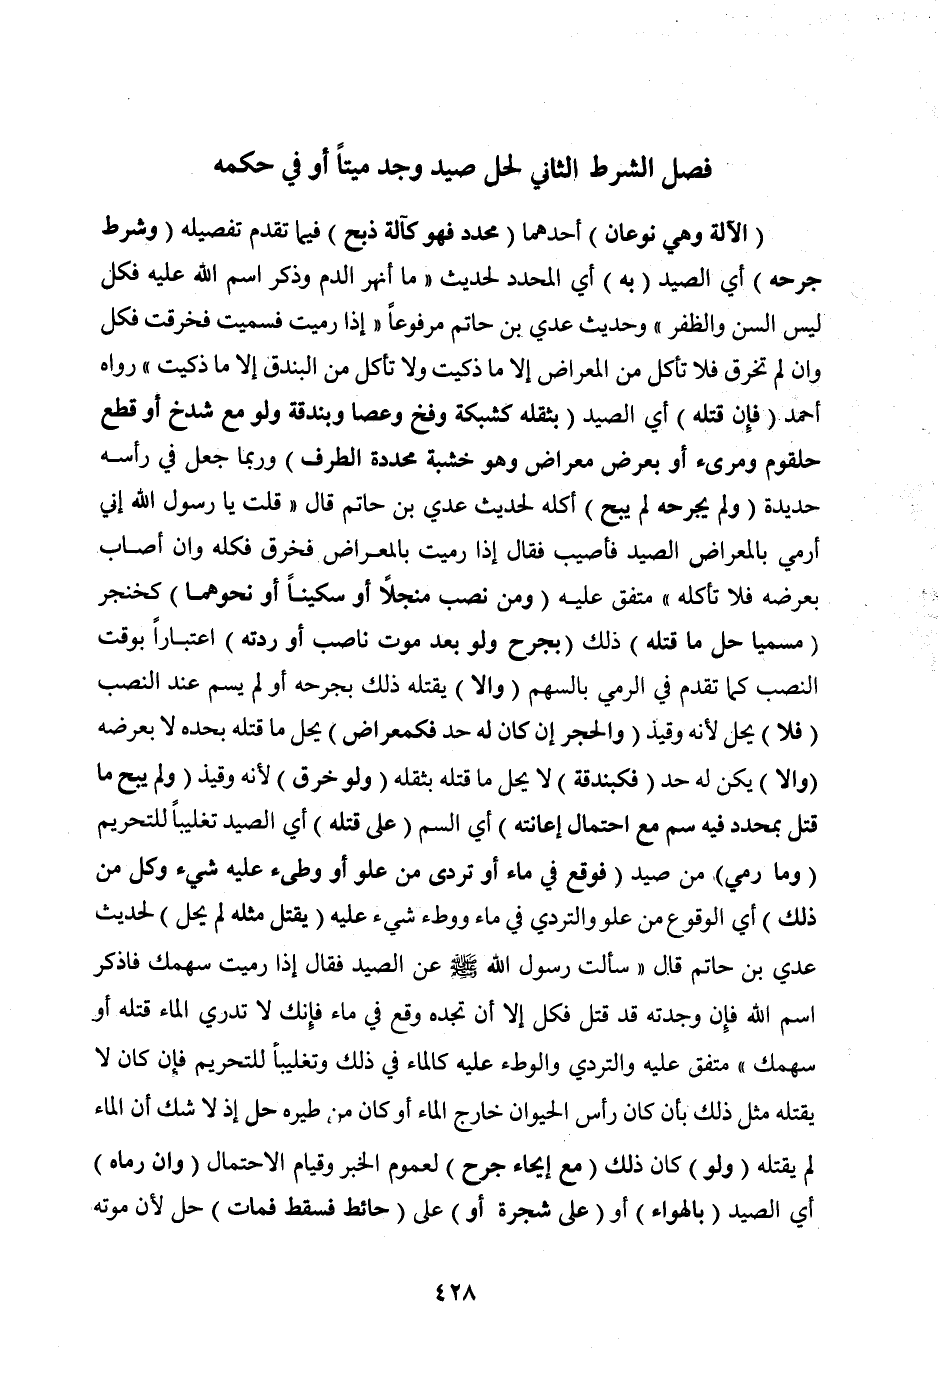 فصل الشرط الثاني لحل صيد وجد ميتاً أو في حكمه
( الآلة وهي نوعان ) أحدهما ( محدد فهو كآلة ذبح ) فيما تقدم تفصيله ( وشرط
جرحه ) أي الصيد ( به ) أي المحدد لحديث « ما أنهر الدم وذكر اسم الله عليه فكل
ليس السن والظفر » وحديث عدي بن حاتم مرفوعاً « إذا رميت فسميت فخرقت فكل
وان لم تخرق فلا تأكل من المعراض إلا ما ذكيت ولا تأكل من البندق إلا ما ذكيت » رواه
أحمد ( فإن قتله ) أي الصيد ( بثقله كشبكة وفخ وعصا وبندقة ولو مع شدخ أو قطع
حلقوم ومرىء أو بعرض معراض وهو خشبة محددة الطرف ) وربما جعل في رأسه
حديدة ( ولم يجرحه لم يبح ) أكله لحديث عدي بن حاتم قال « قلت يا رسول الله إني
أرمي بالمعراض الصيد فأصيب فقال إذا رميت بالمعراض فخرق فكله وان أصاب
بعرضه فلا تأكله » متفق عليه ( ومن نصب منجلاً أو سكيناً أو نحوهما ) كخنجر
( مسميا حل ما قتله ) ذلك ( بجرح ولو بعد موت ناصب أو ردته ) اعتباراً بوقت
النصب كما تقدم في الرمي بالسهم ( والا ) يقتله ذلك بجرحه أو لم يسم عند النصب
( فلا ) يحل لأنه وقيذ ( والحجر إن كان له حد فكمعراض ) يحل ما قتله بحده لا بعرضه
( والا ) يكن له حد ( فكبندقة ) لا يحل ما قتله بثقله ( ولو خرق ) لأنه وقيذ ( ولم يبح ما
قتل بمحدد فيه سم مع احتمال إعانته ) أي السم ( على قتله ) أي الصيد تغليباً للتحريم
( وما رمي ) من صيد ( فوقع في ماء أو تردى من علو أو وطىء عليه شيء وكل من
ذلك ) أي الوقوع من علو والتردي في ماء ووطء شيء عليه ( يقتل مثله لم يحل ) لحديث
عدي بن حاتم قال « سألت رسول الله ﷺ عن الصيد فقال إذا رميت سهمك فاذكر
اسم الله فإن وجدته قد قتل فكل إلا أن تجده وقع في ماء فإنك لا تدري الماء قتله أو
سهمك » متفق عليه والتردي والوطء عليه كالماء في ذلك وتغليباً للتحريم فإن كان لا
يقتله مثل ذلك بأن كان رأس الحيوان خارج الماء أو كان من طيره حل إذ لا شك أن الماء
لم يقتله ( ولو ) كان ذلك ( مع إيحاء جرح ) لعموم الخبر وقيام الاحتمال ( وان رماه )
أي الصيد ( بالهواء ) أو ( على شجرة أو ) على ( حائط فسقط فمات ) حل لأن موته
٤٢٨